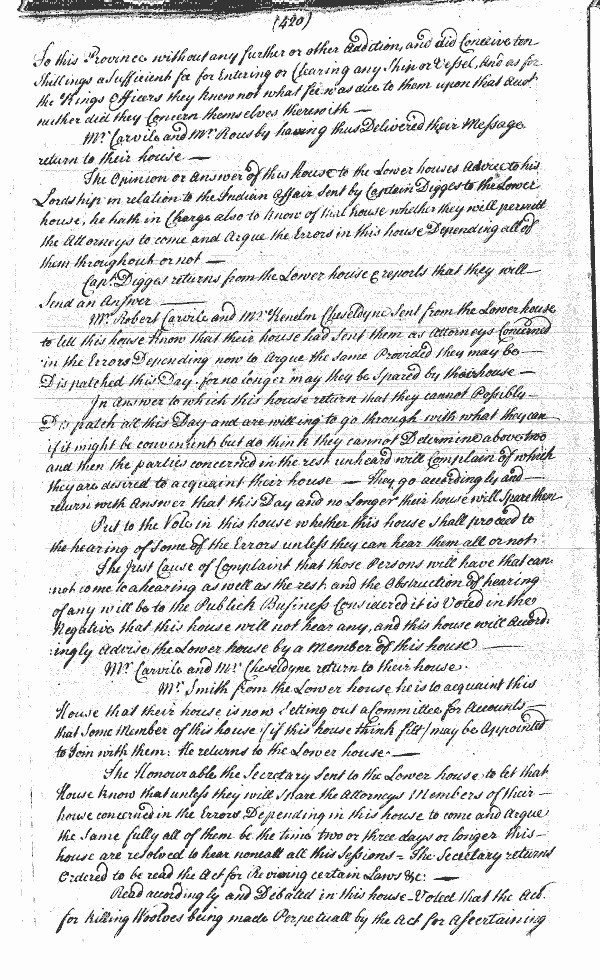 (420)
To this Province without any further or other Addition, and did Conceive ten
Shillings a Sufficient fee for Entering or Clearing any Ship or Vessel, And as for
the Kings Officers they knew not what fee was due to them upon that Acct.
neither did they Concern themselves therewith —
Mr. Carvile and Mr. Rousby having thus Delivered their Message
return to their house —
The Opinion or Answer of this house to the Lower houses Advice to his
Lordship in relation to the Indian Affair Sent by Captain Digges to the Lower
house, he hath in Charge also to know of that house whether they will permitt
the Attorneys to come and Argue the Errors in this house Depending all of
them throughout or not —
Capt. Digges returns from the Lower house & reports that they will
Send an Answer —
Mr. Robert Carvile and Mr. Kenelm Cheseldyne Sent from the Lower house
to let this house Know that their house had Sent them as Attorneys Concerned
in the Errors Depending now to Argue the Same Provided they may be
Dispatched this Day; for no longer may they be Spared by their house —
In Answer to which this house return that they cannot Possibly
Dispatch all this Day and are willing to go through with what they can
if it might be convenient but do think they cannot Determine above two
and then the parties concerned in the rest unheard will Complain of which
they are desired to acquaint their house — They go accordingly and
return with Answer that this Day and no Longer their house will Spare them
Put to the Vote in this house whether this house Shall proceed to
the hearing of Some of the Errors unless they can hear them all or not.
The Just Cause of Complaint that those Persons will have that can
not come to a hearing as well as the rest, and the Obstruction of hearing
of any will be to the Publick Business Considered it is Voted in the
Negative that this house will not hear any, and this house will Accord
ingly Advise the Lower house by a Member of this house —
Mr. Carvile and Mr. Cheseldyne return to their house.
Mr. Smith from the Lower house he is to acquaint this
House that their house is now Setting out a Committee for Accounts
that Some Member of this house (if this house think fitt) may be Appointed
to Join with them: He returns to the Lower house —
The Honourable the Secretary Sent to the Lower house to let that
House know that unless they will Spare the Attorneys Members of their
house concerned in the Errors Depending in this house to come and Argue
the Same fully all of them be the time two or three days or longer this
house are resolved to hear none at all this Sessions = The Secretary returns
Ordered to be read the Act for Reviving certain Laws &c: —
Read accordingly and Debated in this house — Voted that the Act
for killing Woolves being made Perpetuall by the Act for Ascertaining